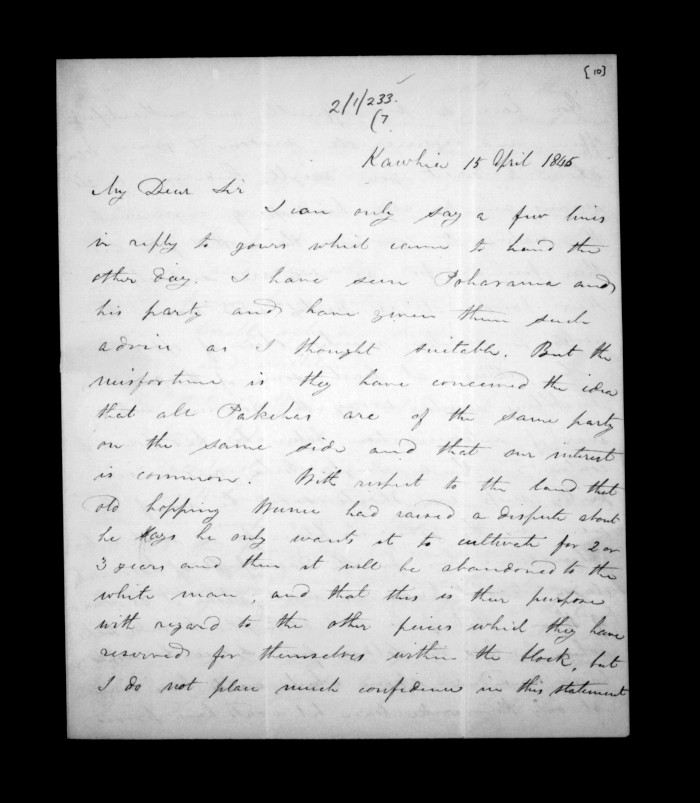 [10]
2/1/233.
(7
Kawhia 15 April 1846
My Dear Sir
I can only say a few lines
in reply to yours which came to hand the
other day. I have seen Poharama and
his party and have given them such
advice as I thought suitable. But the
misfortune is they have conceived the idea
that all Pakehas are of the same party
on the same side and that our interest
is common. With respect to the land that
old hopping had raised a dispute about
he says he only wants it to cultivate for 2 or
3 years and then it will be abandoned to the
white man, and that this is their purpose
with regard to the other pieces which they have
reserved for themselves within the block, but
I do not place much confidence in this statement